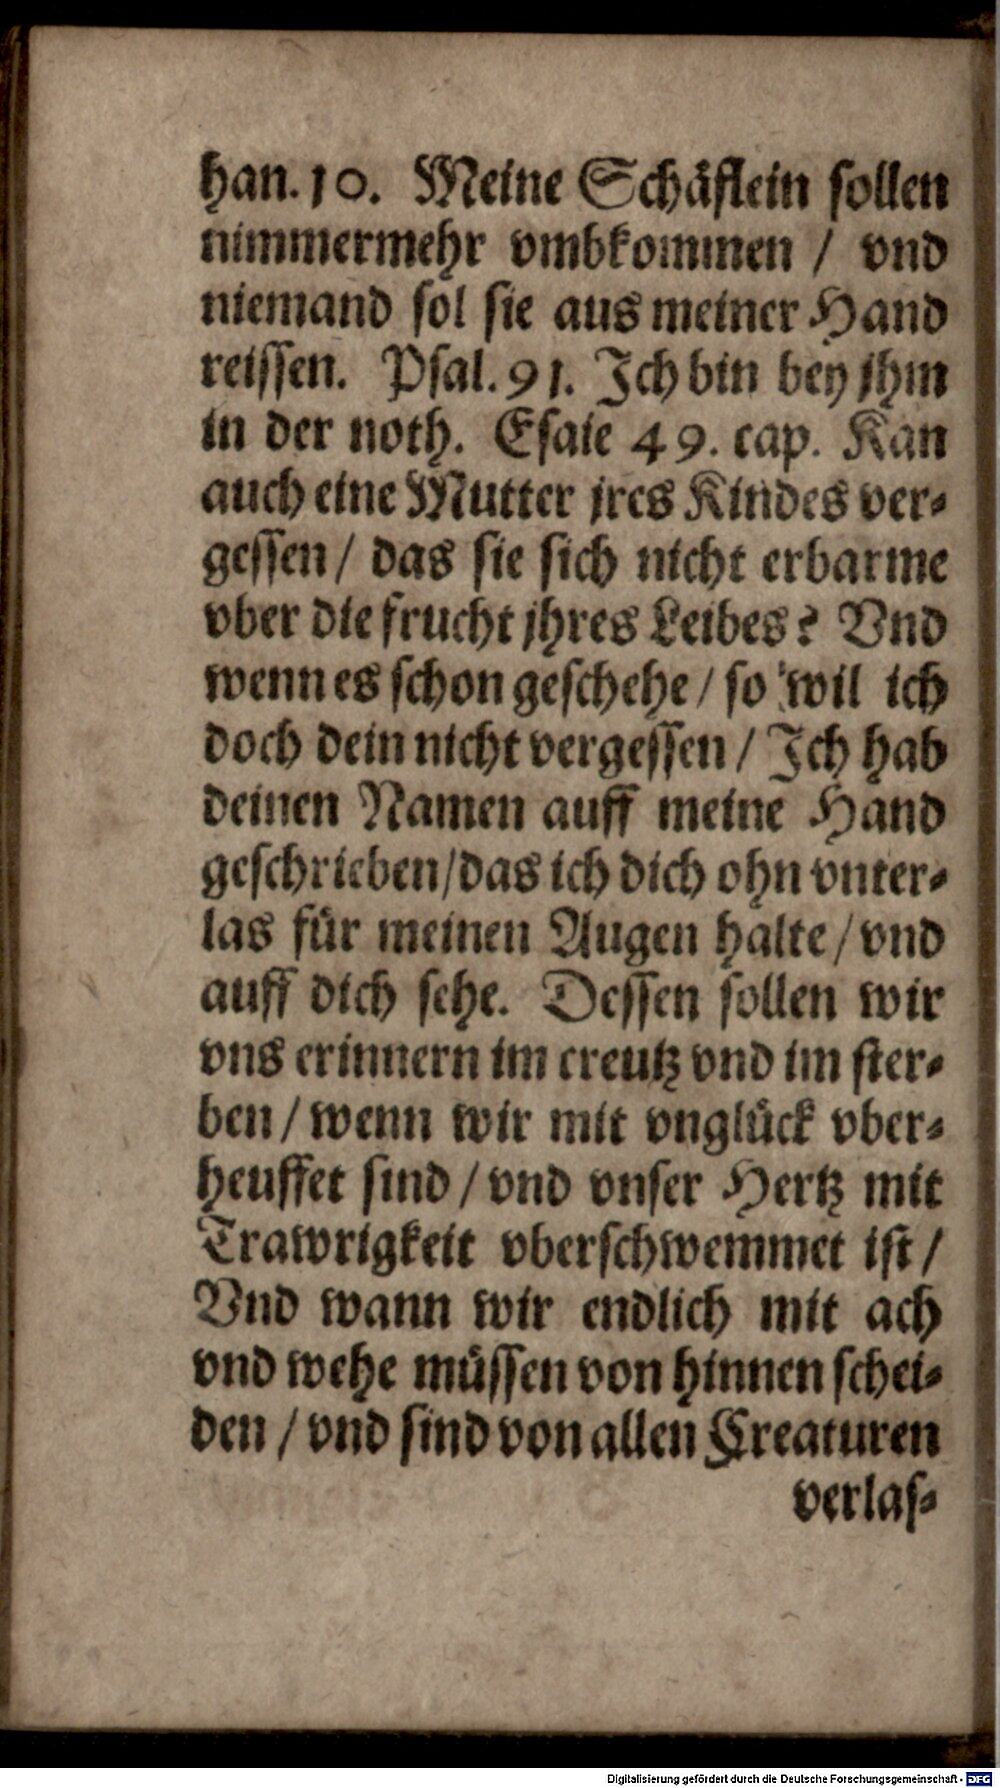 han. 10. Meine Schäflein sollen
nimmermehr vmbkommen / vnd
niemand sol sie aus meiner Hand
reissen. Psal. 91. Ich bin bey jhm
in der noth. Esaie 49. cap. Kan
auch eine Mutter jres Kindes ver-
gessen / das sie sich nicht erbarme
vber die frucht jhres Leibes? Vnd
wenn es schon geschehe / so wil ich
doch dein nicht vergessen / Ich hab
deinen Namen auff meine Hand
geschrieben / das ich dich ohn vnter-
las für meinen Augen halte / vnd
auff dich sehe. Dessen sollen wir
vns erinnern im creutz vnd im ster-
ben / wenn wir mit vnglück vber-
heuffet sind / vnd vnser Hertz mit
Trawrigkeit vberschwemmet ist /
Vnd wann wir endlich mit ach
vnd wehe müssen von hinnen schei-
den / vnd sind von allen Creaturen
verlas-
Digitalisierung gefördert durch die Deutsche Forschungsgemeinschaft - DFG